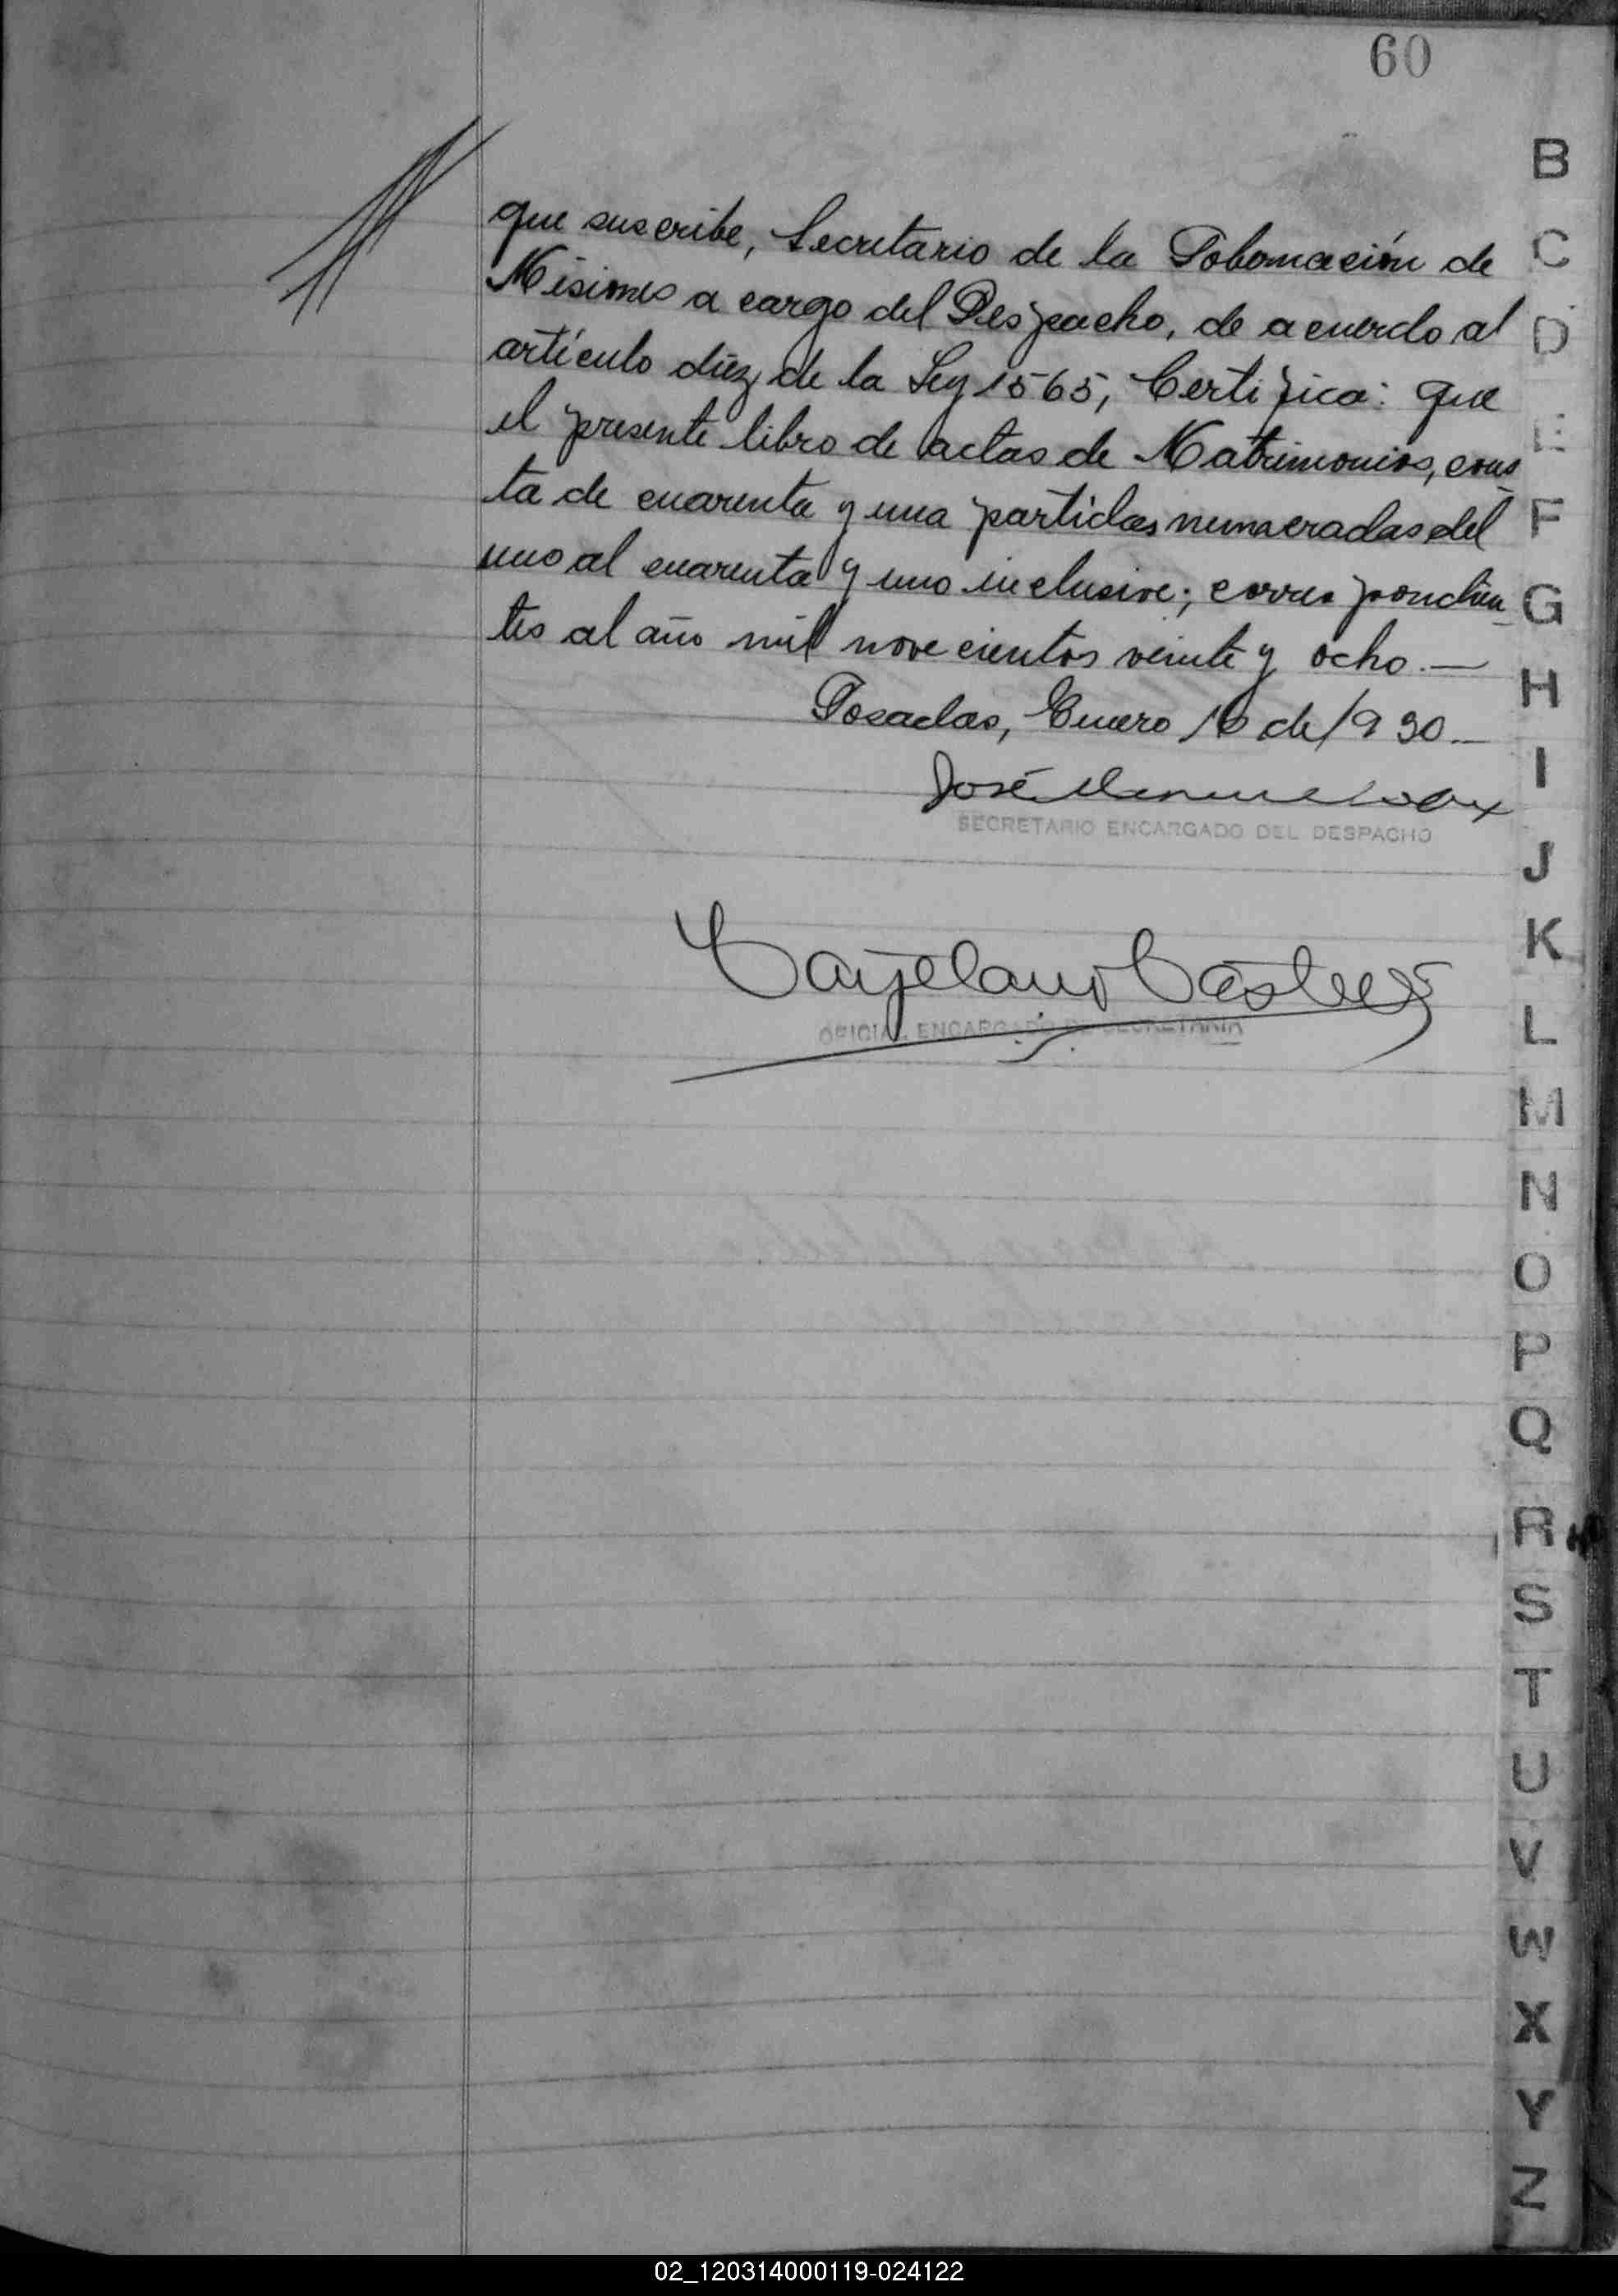 60
que suscribe, Secretario de la Gobernación de
Misiones a cargo del Despacho, de acuerdo al
artículo diez de la Ley 1565, Certifica: que
el presente libro de actas de Matrimonios, cons
ta de cuarenta y una partidas numeradas del
uno al cuarenta y uno inclusive; correspondien
tes al año mil novecientos veinte y ocho.—
Posadas, Enero 10 de 1930.—
José Manuel
SECRETARIO ENCARGADO DEL DESPACHO
Cayetano Castelli
OFICIAL ENCARGADO DE SECRETARIA
B
C
D
E
F
G
H
I
J
K
L
M
N
O
P
Q
R
S
T
U
V
W
X
Y
Z
02_120314000119-024122